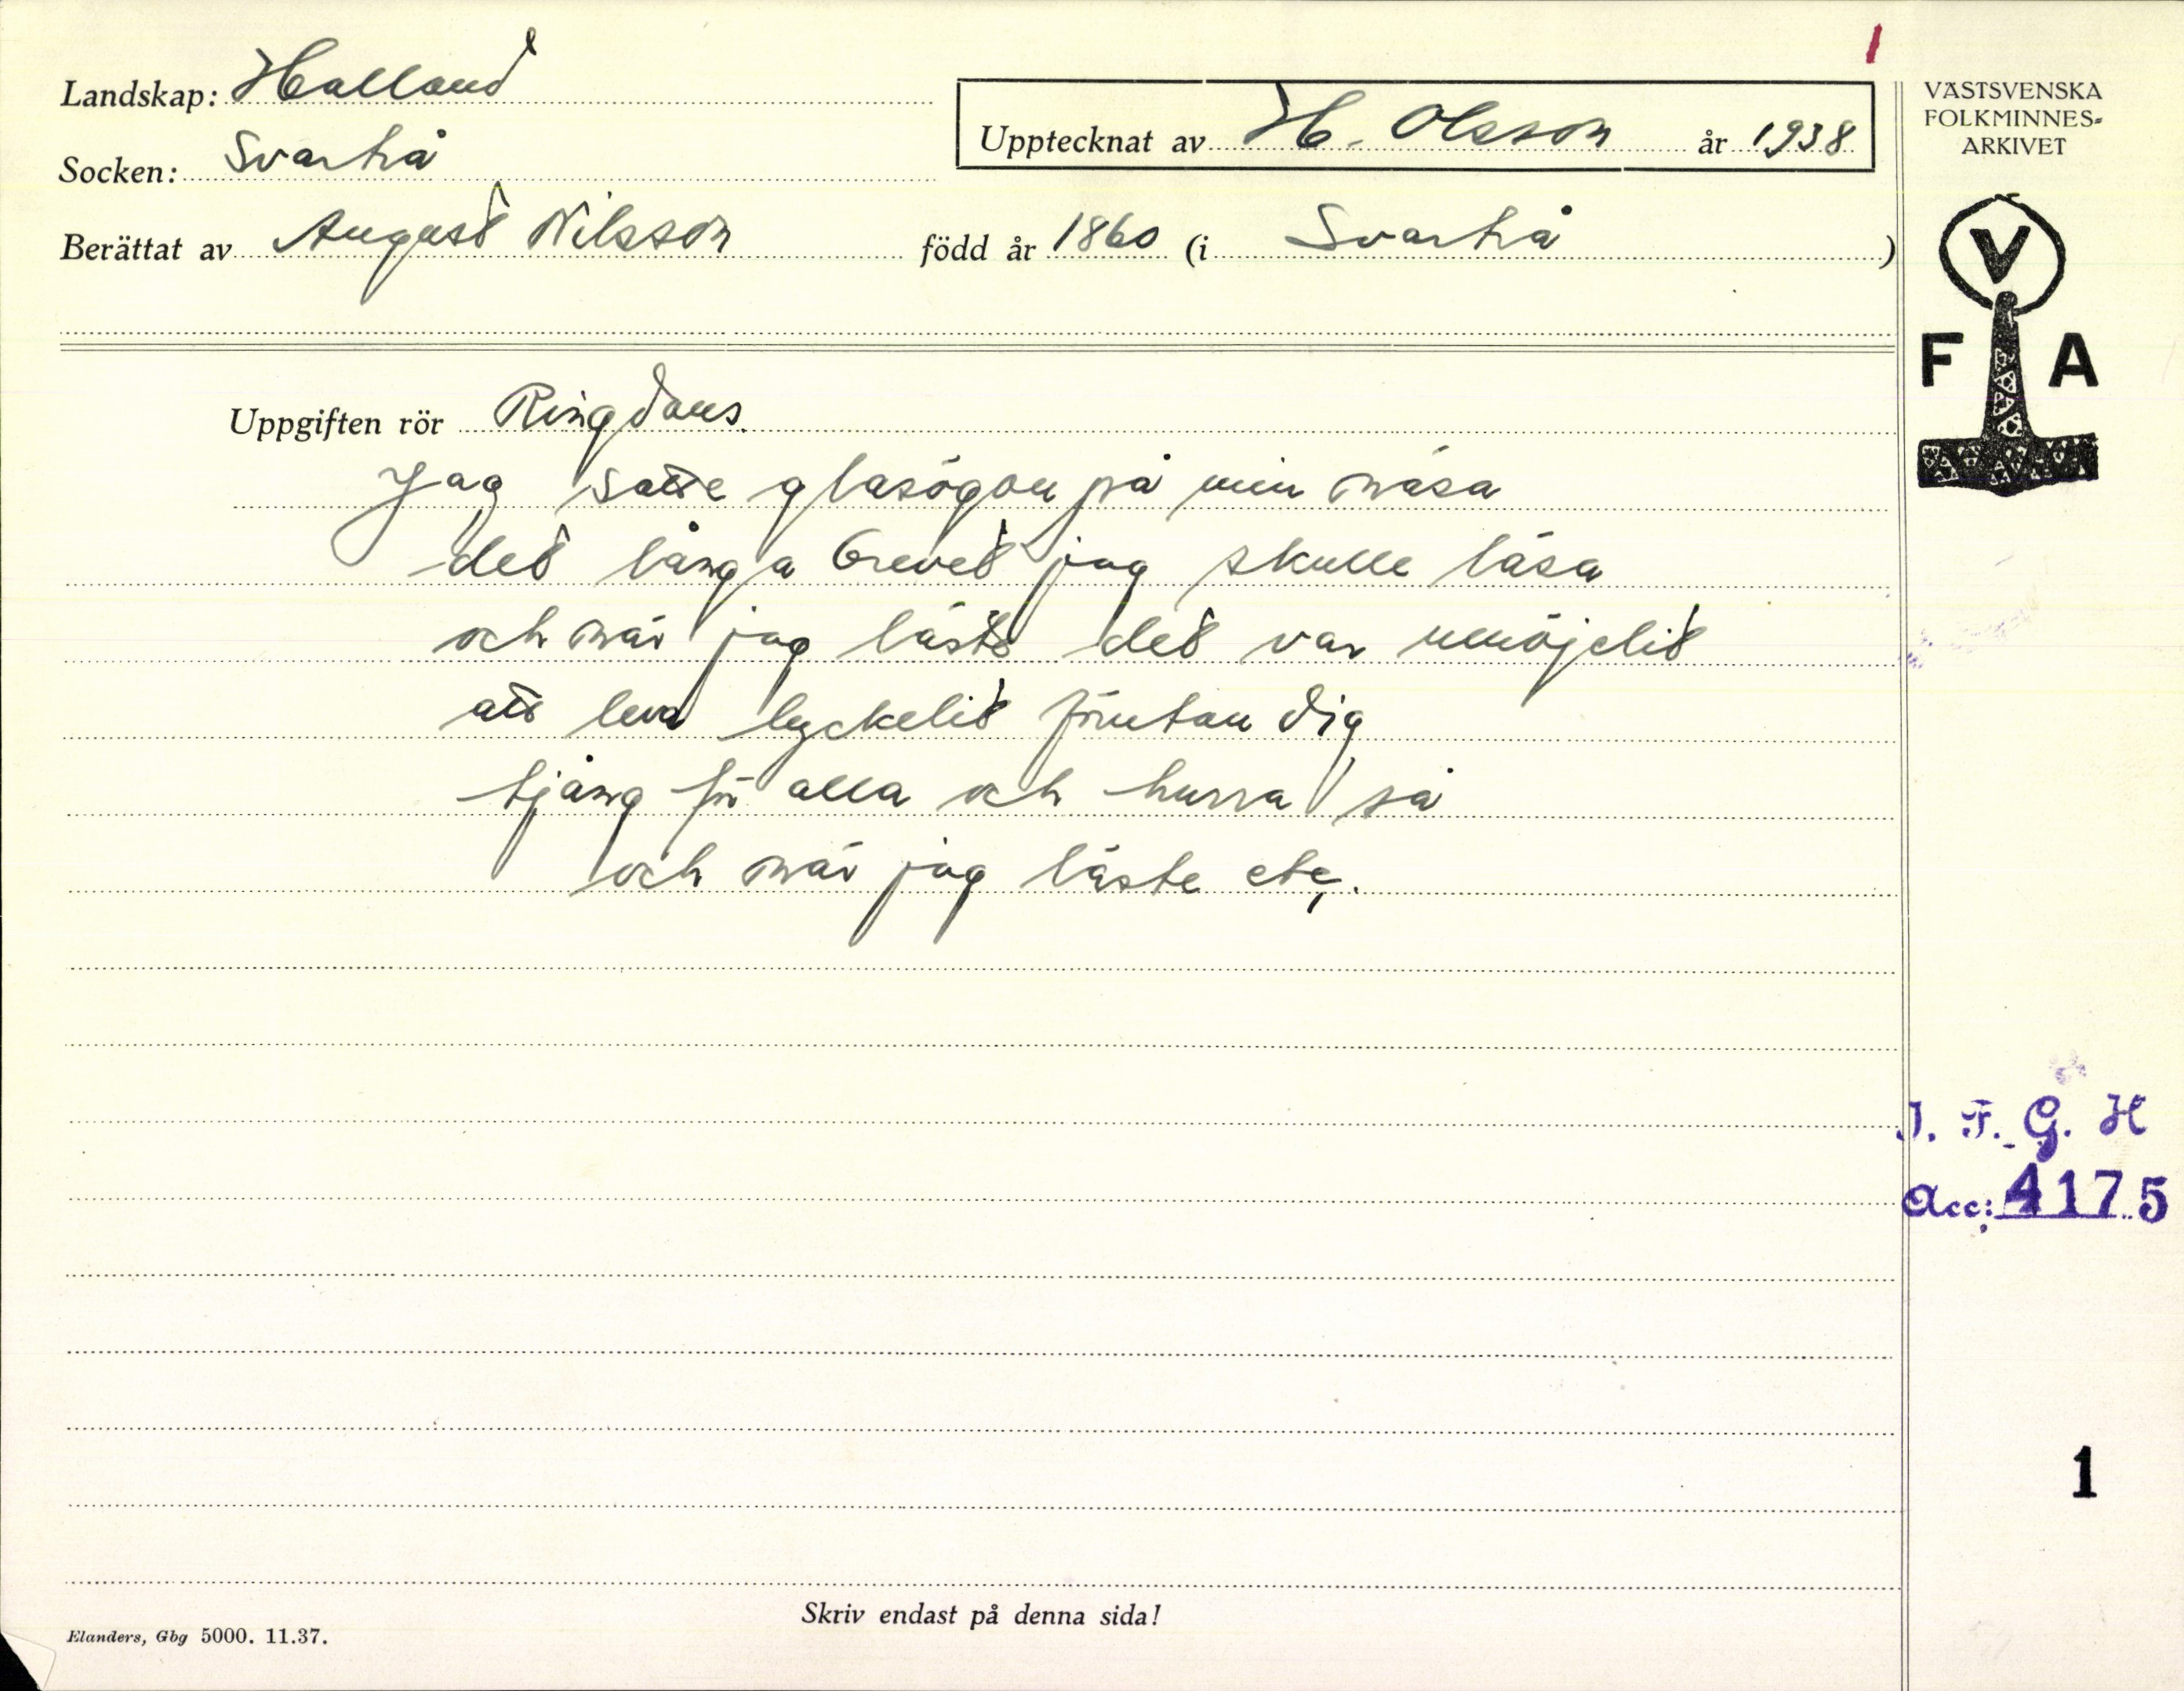 1
Landskap: Halland
Socken: Svartrå
Upptecknat av H. Olsson år 1938
Berättat av August Nilsson född år 1860 (i Svartrå)
VÄSTSVENSKA
FOLKMINNES-
ARKIVET
V
F A
Uppgiften rör Ringdans.
Jag satte glasögon på min näsa
det långa brevet jag skulle läsa
och när jag läste det var umöjelit
att leva lyckelit förutan dig
tjång för alla och hurra så
och när jag läste etc.
I. F. G. H
Acc: 4175
1
Skriv endast på denna sida!
Elanders, Gbg 5000. 11.37.